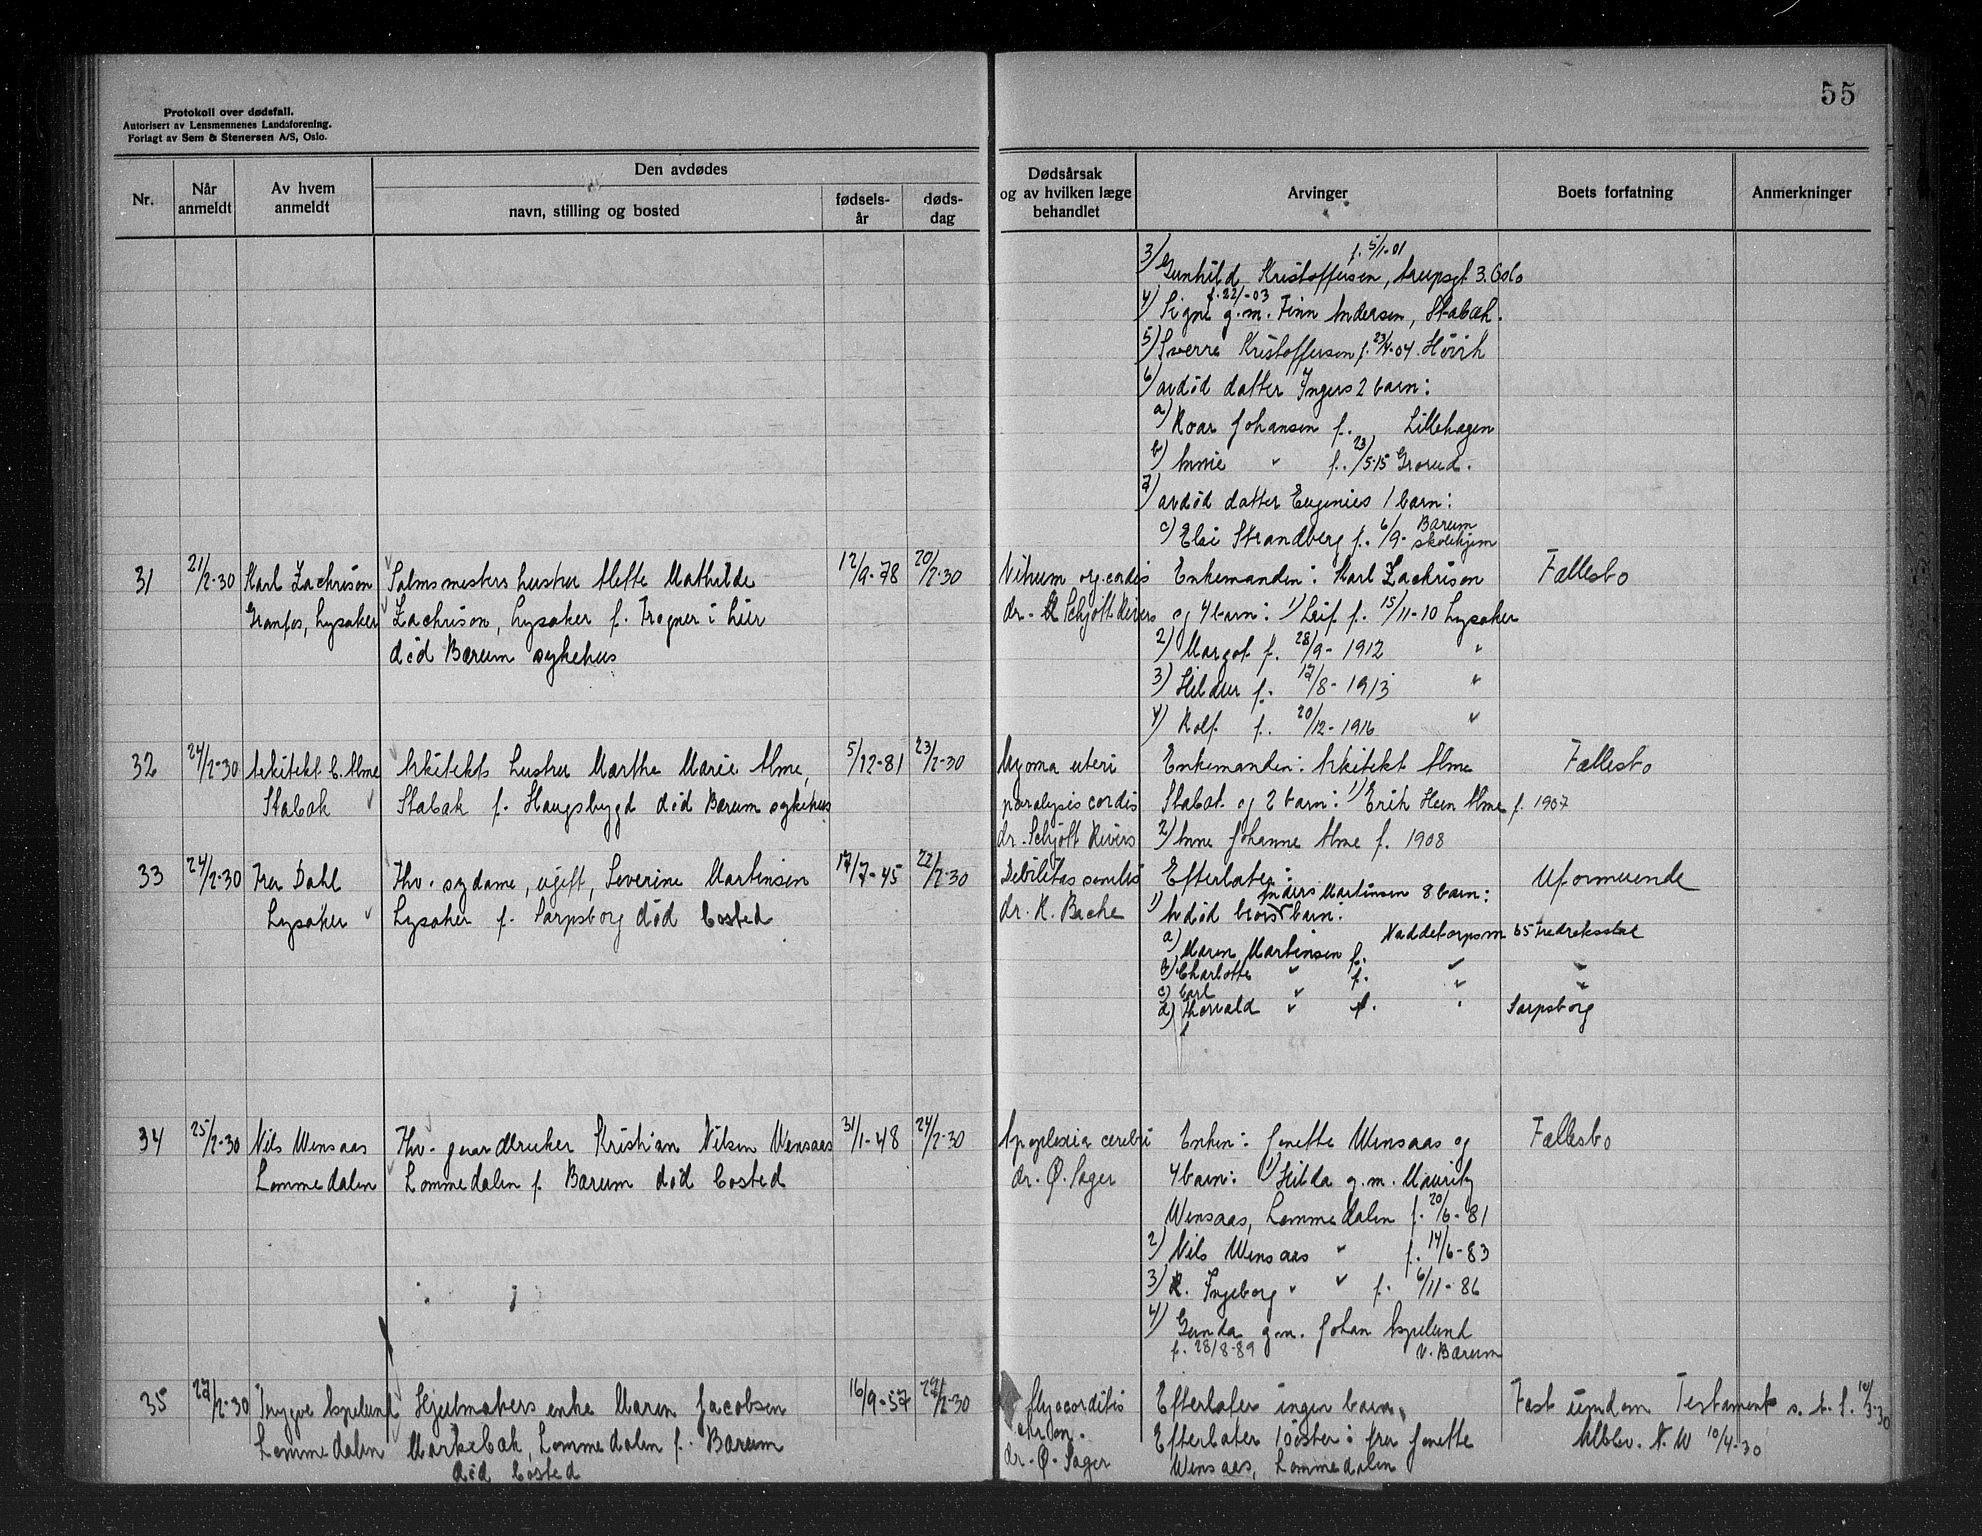 55
Protokoll over dødsfall.
Autorisert av Lensmennenes Landsforening.
Forlagt av Sem & Stenersen A/S, Oslo.
Nr.
Når anmeldt
Av hvem anmeldt
Den avdødes
navn, stilling og bosted
fødsels-år
døds-dag
Dødsårsak og av hvilken læge behandlet
Arvinger
Boets forfatning
Anmerkninger
f. 5/1-01
3) Gunhild Kristoffersen, 3. Oslo
f. 22/-03
4) Signe g.m. Finn Andersen, Stabæk.
5) Sverre Kristoffersen f. 23/4-04. Høvik
6) avdød datter Ingers 2 barn:
a) Roar Johansen f. Lillehagen
b) Annie " f. 23/5-15 Grorud.
7) avdød datter Eugenies 1 barn:
c) Elsi Strandberg f. 6/9- Bærum skolehjem
31 21/2-30 Karl Zachrison Salmsmesters hustru Mette Mathilde 12/9-78 20/2-30 Vitium org. cordis Enkemanden: Karl Zachrison Fællesbo
Granfos, Lysaker Zachrison, Lysaker f. Trøgner i hier dr. Schjøtt Rivers og 4 barn: 1) Leif f. 15/11-10 Lysaker
død Bærum sykehus 2) Margot f. 28/9-1912 "
3) Hildur f. 17/8-1913 "
4) Rolf f. 20/12-1916 "
32 24/2-30 Arkitekt C. Alme Arkitekts hustru Marthe Marie Alme, 5/12-81 23/2-30 Myoma uteri Enkemanden: Arkitekt Alme Fællesbo
Stabæk Stabæk f. Haugsbygd død Bærum sykehus paralysis cordis Stabæk og 2 barn: 1) Erik Hein Alme f. 1907
dr. Schjøtt Rivers 2) Anne Johanne Alme f. 1908
33 24/2-30 Fru Dahl Fhv. sydame, ugift, Severine Martinsen 17/7-45 22/2-30 Debilitas senilis Efterlater: Uformuende
Lysaker Lysaker f. Sarpsborg død bosted dr. K. Bache 1) Avdød brors Anders Martinsen 8 barn: barn.
a) Maren Martinsen f. 65 Fredrikstad
b) Charlotte " f. " "
c) Carl " " "
d) Thorvald " f. " Sarpsborg
34 25/2-30 Nils Wensaas Fhv. gaardbruker Kristian Nilsen Wensaas 31/1-48 24/2-30 Apoplexia cerebri Enken: Jenette Wensaas og Fællesbo
Lommedalen Lommedalen f. Bærum død bosted dr. Ø. Sager 4 barn: 1) Hilda g.m. Mauritz
Wensaas, Lommedalen f. 20/6-81
2) Nils Wensaas " f. 14/6-83
3) K. Ingeborg " " f. 6/11-86
4) Gunda g.m. Johan Aspelund
f. 28/8-89 V. Bærum
35 27/2-30 Trygve Aspelund Hjulmakers enke Maren Jacobsen 16/9-57 27/2-30 Myocorditis Efterlater ingen barn, Fast eiendom Testament s. t. S. 10/3-30
Lommedalen Markebæk, Lommedalen f. Bærum chron. Efterlater 1 søster: fru Jenette N. W 10/4-30
død bosted dr. Ø. Sager Wensaas, Lommedalen